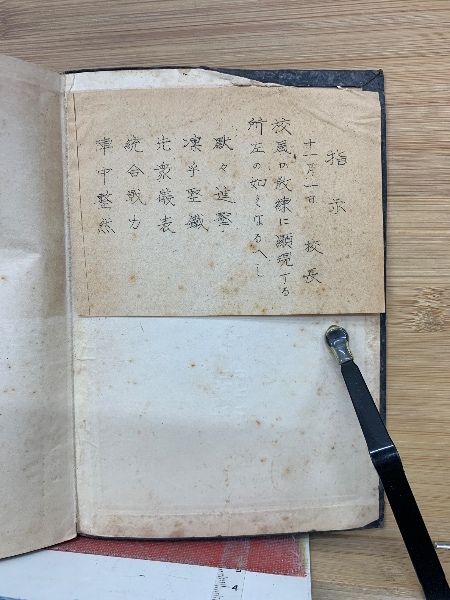 指示
十一月一日 校長
校風の教練に顕現する
所左の如くなるへし
黙々進撃
凛乎堅鐵
先衆儀表
統合戦力
寡中整然
4